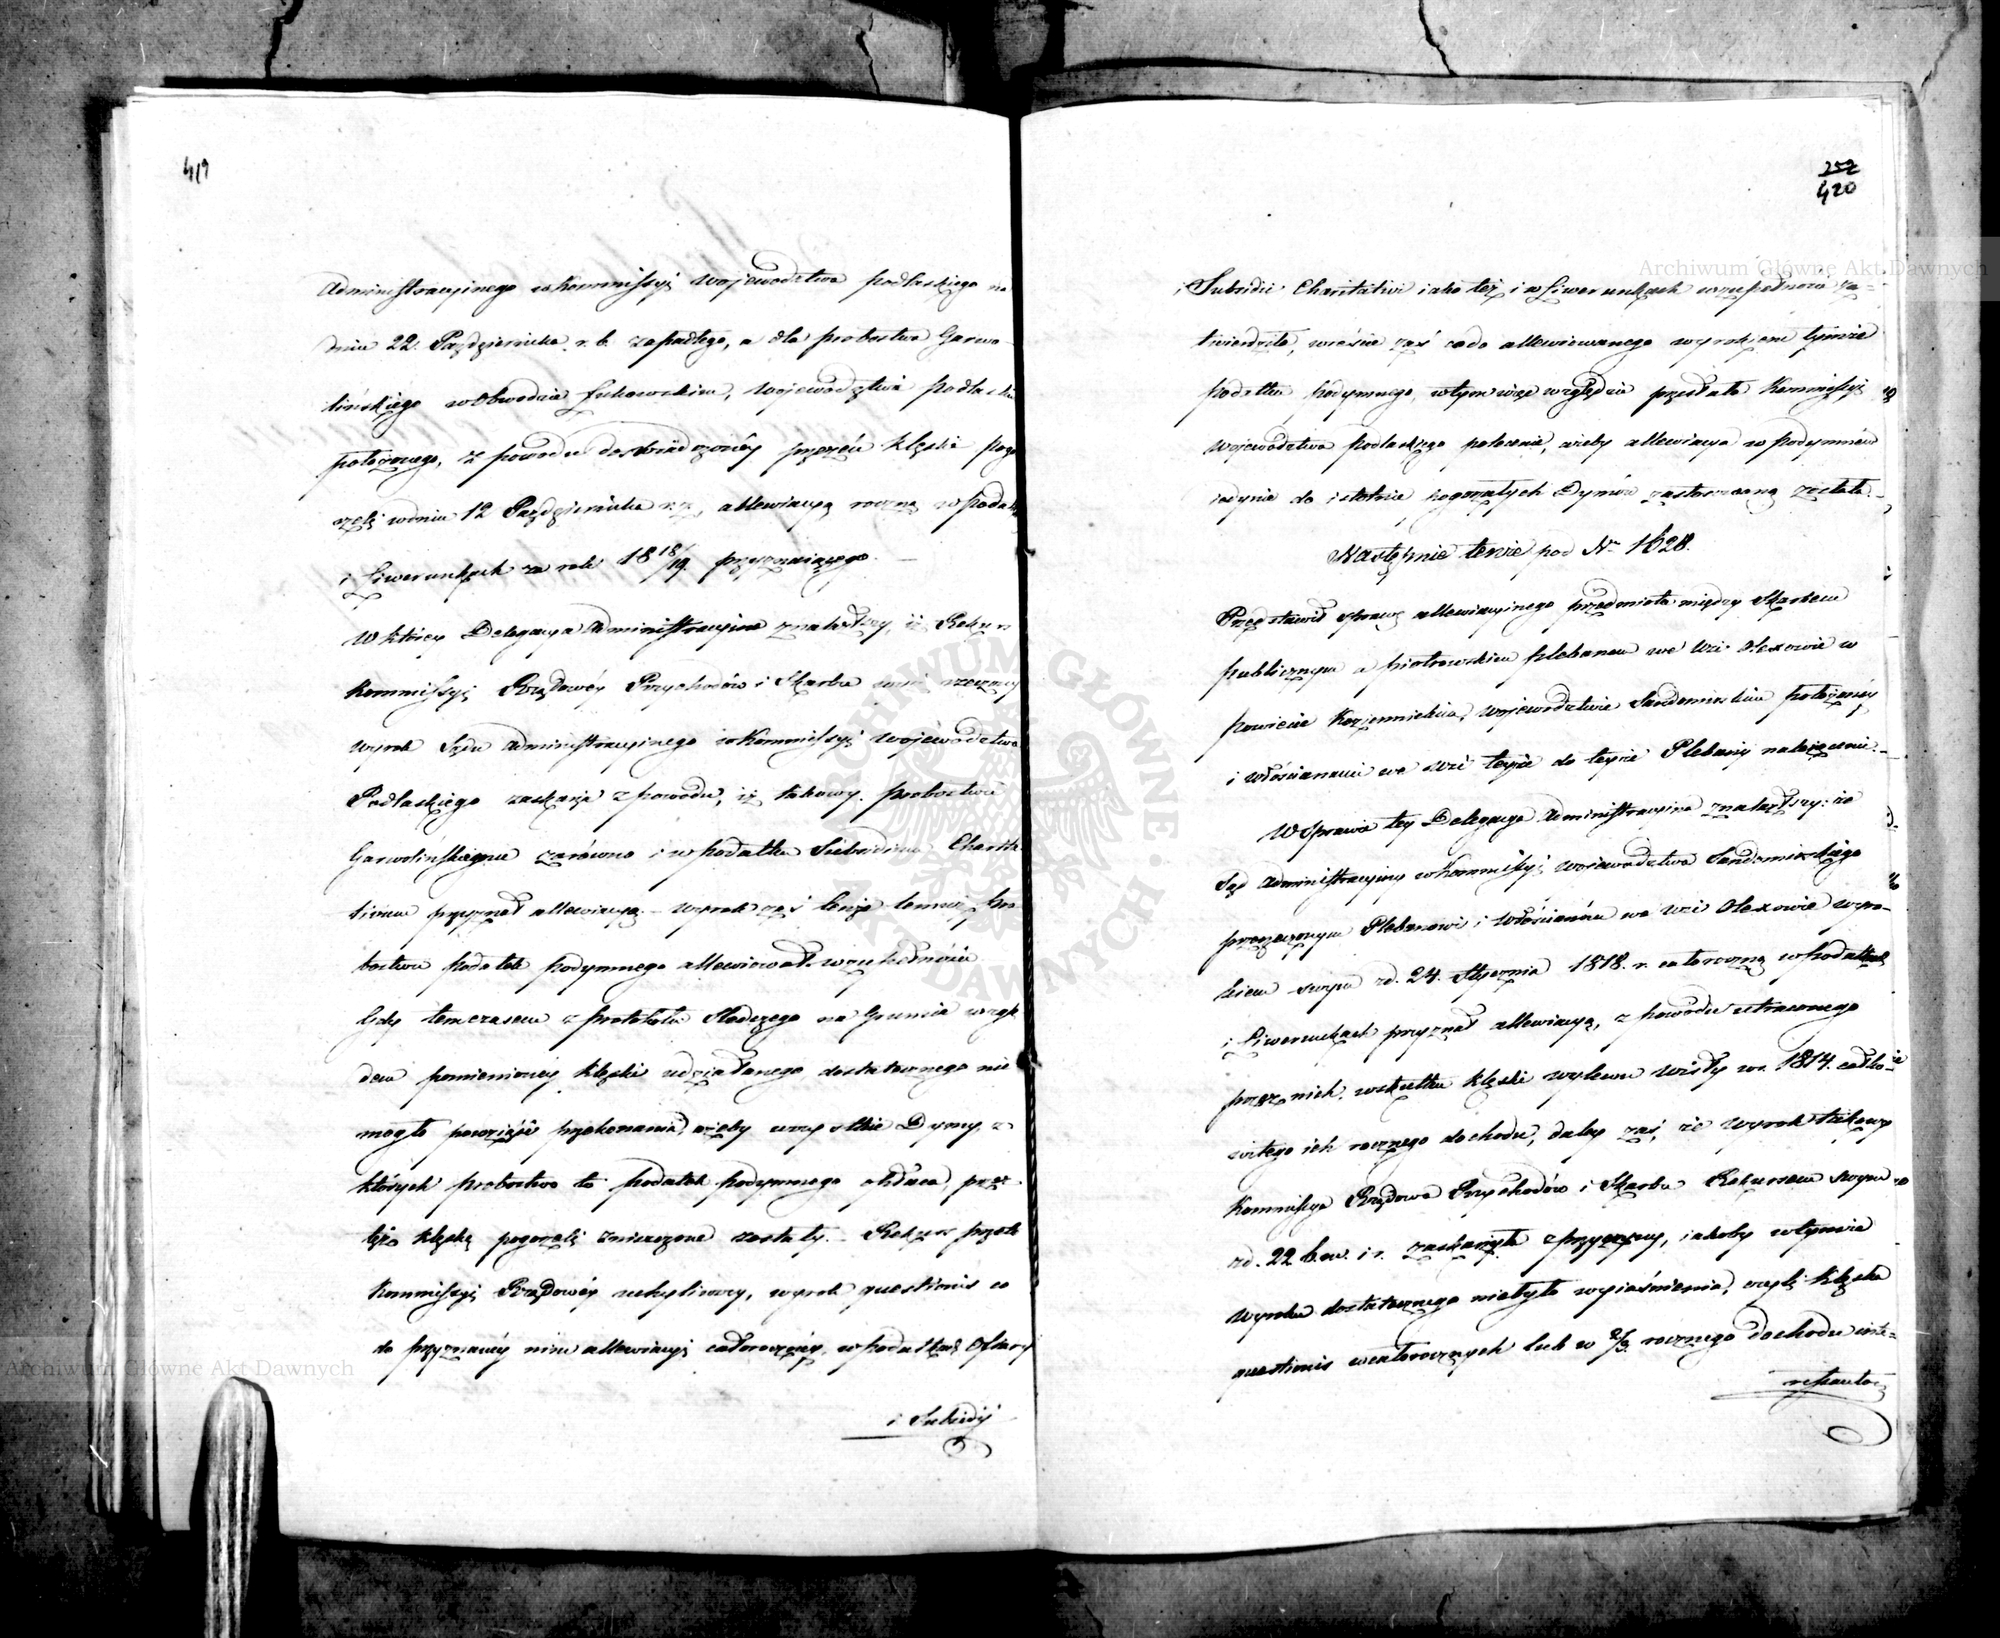 419
Administracyinego w Kommissyi Województwa Podlaskiego na
dniu 22. Października r. b. zapadłego, a dla probostwa Garwo-
lińskiego w Obwodzie Łukowskim, Województwie Podlaskim
położonego, z powodu doświadczonéy przezeń klęski pogo
rzeli w dniu 12 Października r. z. allewiacyą roczną w podatku
i Liwerunkach za rok 18 18/19. przyznaiącego. —
W któréy Delegacya Administracyina znalazłszy, iż Rekurs
Kommissyi Rządowéy Przychodów i Skarbu rzeczony
wyrok Sądu Administracyinego w Kommissyi Województwa
Podlaskiego zaskarża z powodu, iż takowy probostwu
Garwolińskiemu zarówno i w podatku Subsidium Charita
tivum przyznał allewiacyą. – wyrok zaś tenże temuż pro
bostwu podatek podymnego allewiował w zupełności
Gdy tymczasem z protokołu śledczego na Gruncie wzglę
dem pomienionéy klęski udziałanego dostatecznego nie
mogło powziąść przekonania, ażeby wszystkie Dymy z
których probostwo to podatek podymnego opłaca, przez
też klęskę pogorzeli zniszczone zostały. – Rekurs przeto
Kommissyi Rządowéy uchyliwszy, wyrok questionis co
do przyznanéy nim allewiacyi całorocznéy, w podatkach Ofiary
i Subsidij
252
420
i Subsidii Charitativi iako téż i w Liwerunkach w zupełności za-
twierdziła, wzieście zaś co do allewiowanego wyrokiem tymże
podatku podymnego, w tym więc względzie przesłała Kommissyi
Województwa Podlaskiego polecenie, ażeby allewiacya w podymném
iedynie do istotnie pogorzałych Dymów zastosowaną została. –
Następnie tenże pod Nrm 1628.
Przedstawił sprawę allewiacyinego przedmiotu między Skarbem
publicznym a Piotrowskim Plebanem we Wsi Olexowie w
powiecie Kozienickim, Województwie Sandomirskim położonéy
i włościanami we wsi teyże do teyże Plebanij należącemi. –
W sprawie téy Delegacya Administracyina znalazłszy: że
Sąd Administracyiny w Kommissyi Województwa Sandomirskiego
przerzeczonym Plebanowi i Włościanom we wsi Olexowie wyro-
kiem swym z d. 24. Stycznia 1818. r. całoroczną w podatkach
i Liwerunkach przyznał allewiacyą, z powodu utraconego
przez nich, w skutku klęski wylewu Wisły w r. 1814. całko-
witego ich rocznego dochodu, daléy zaś, że wyrok takowy
Kommissya Rządowa Przychodów i Skarbu Rekursem swym
z d. 22 b. m. i r. zaskarżyła z przyczyny, iakoby w tymże
wyroku dostatecznego niebyło wyiaśnienia, czyli klęska
questionis w całorocznych lub w 2/3. rocznego dochodu inte-
ressantów